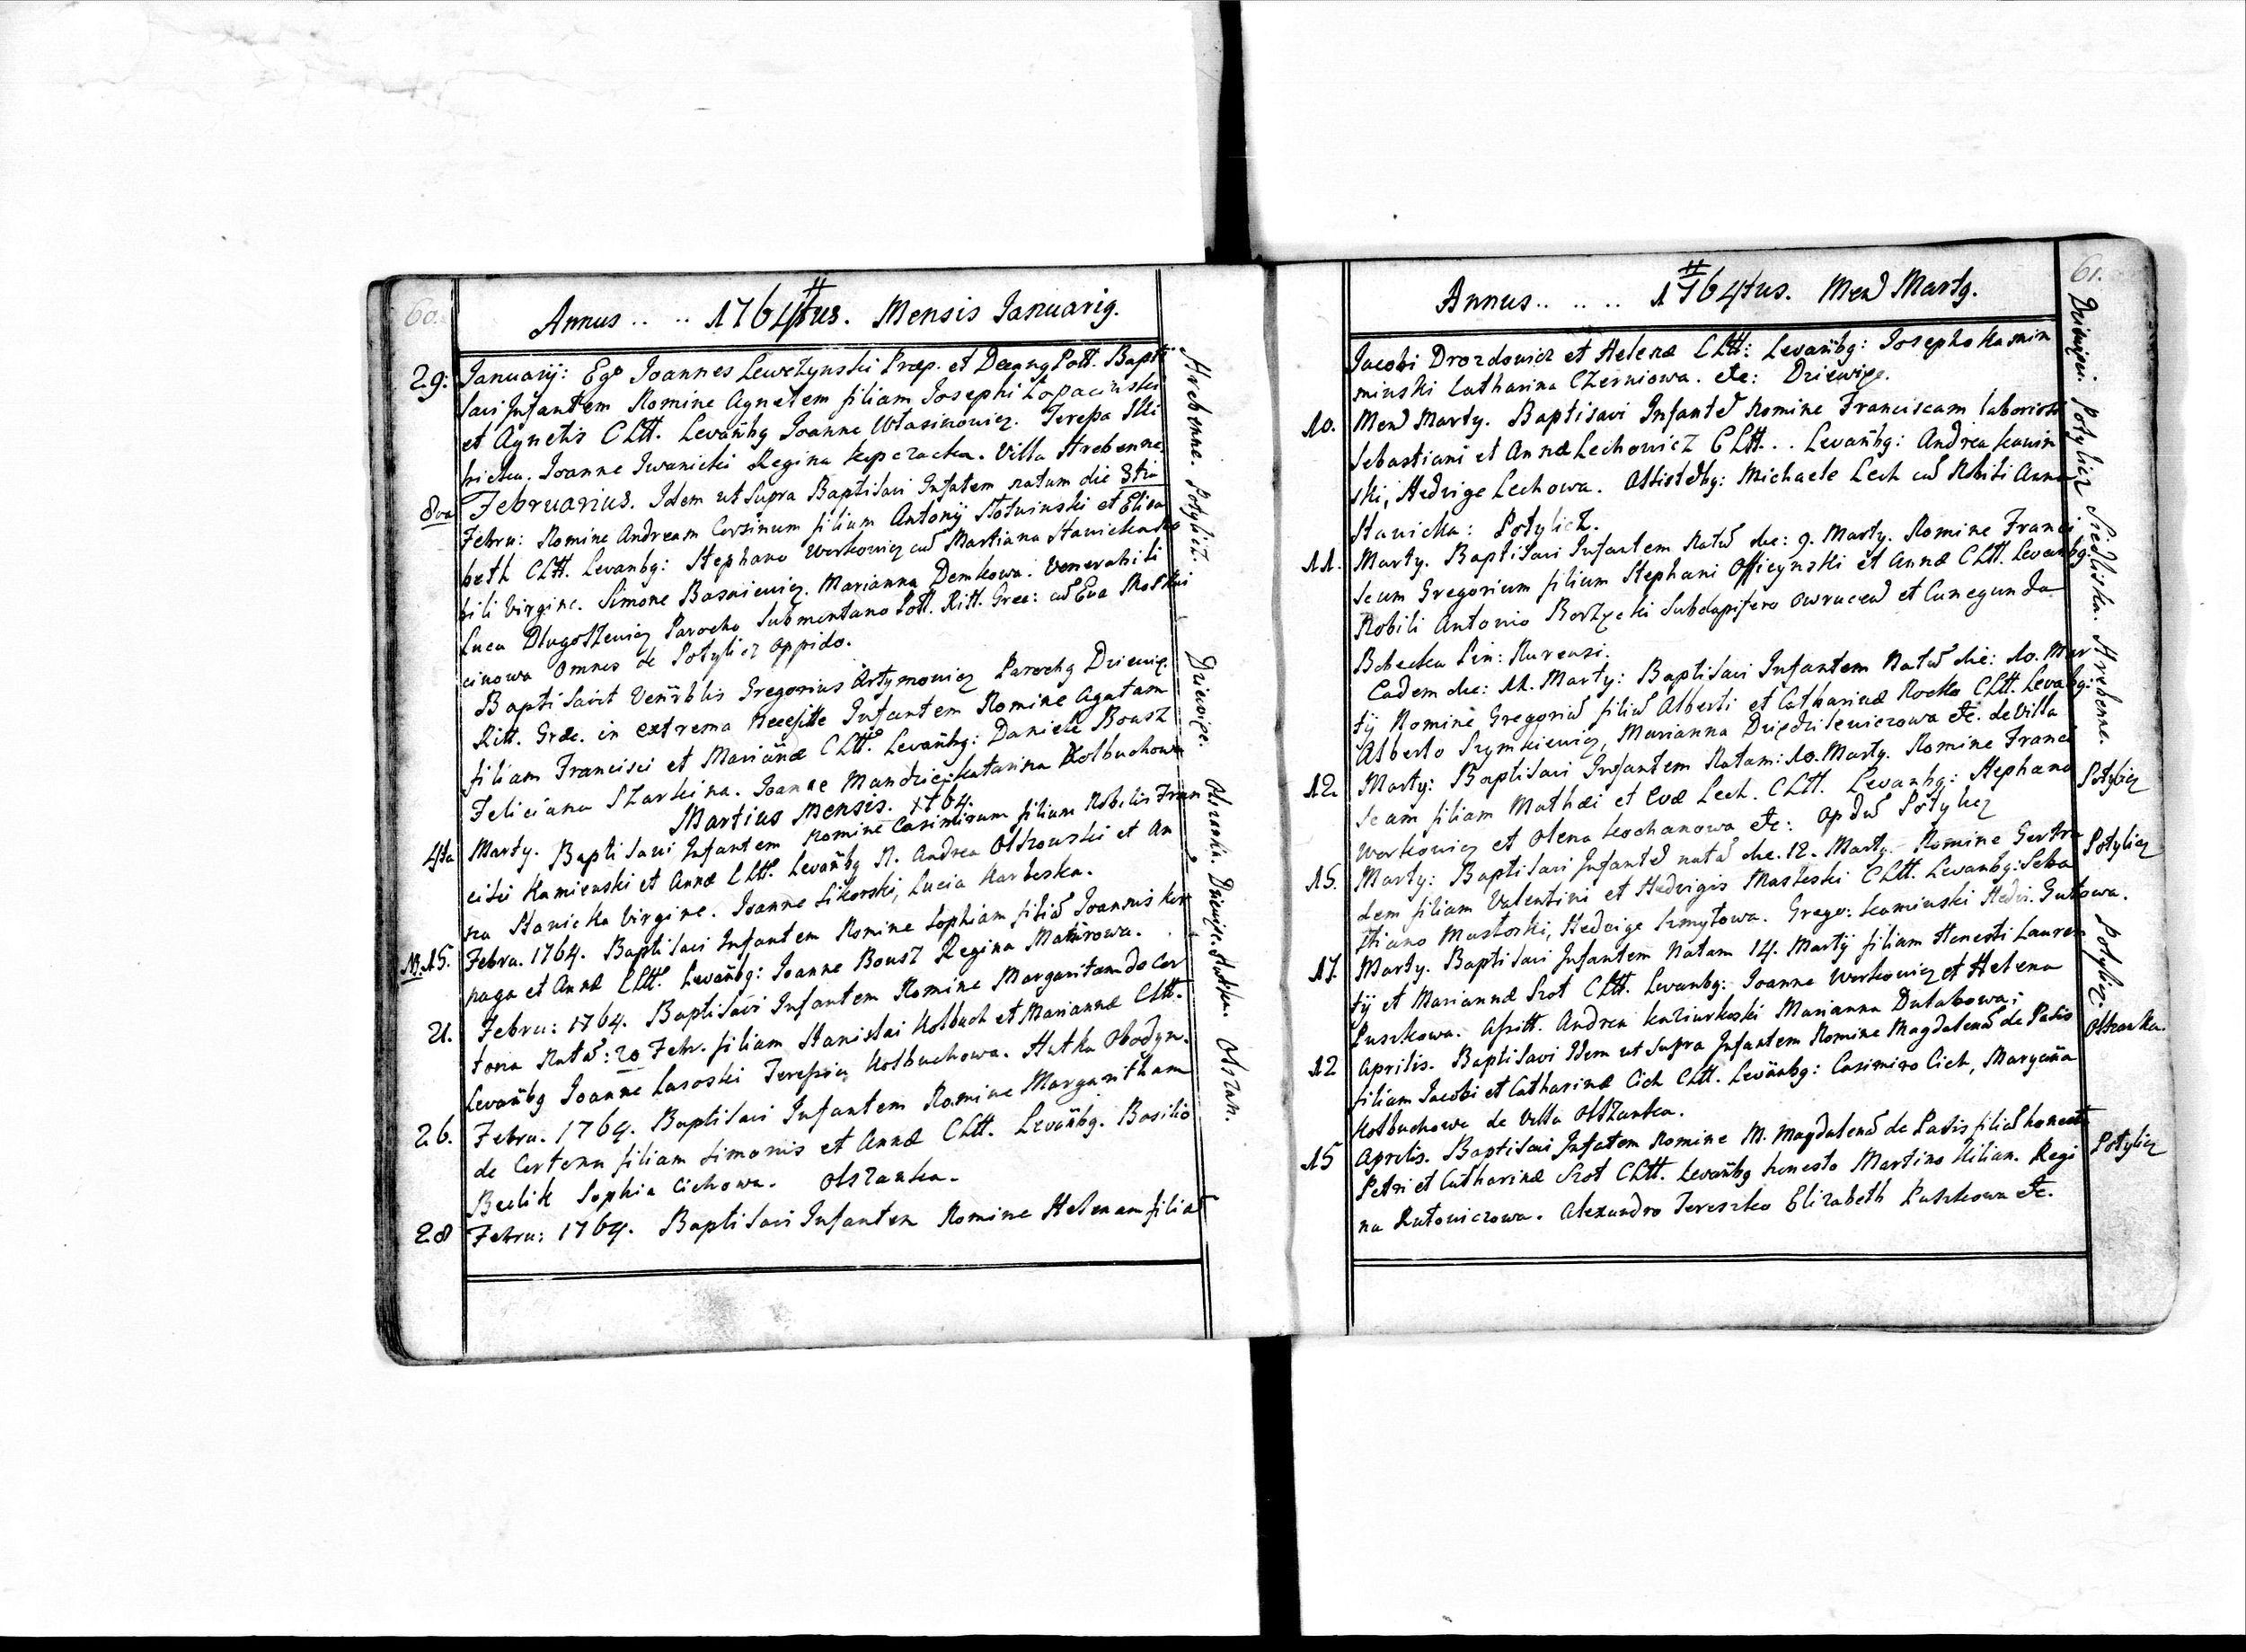 60.
Annus .. .. 1764tus. Mensis Januarij.
29. Januarij: Ego Joannes Lewczynski Præp. et Decanq Pott. Bapti
savi Infantem Nomine Agnetem filiam Josephi Łopaciński
et Agnetis CLtt. Levañbg Joanne Własinowicz. Teresa
bicka. Joanne Iwanicki Regina Kopczacka. Villa Hrebenne.
8va Februarius. Idem ut supra Baptisavi Infatem natum die 3tia
Febru: Nomine Andream Corsinum filium Antonij Słotwinski et Elisa
beth CLtt. Levanbg: Stephano Workowicz cu Martiana Stawicka No
bili Virgine. Simone Basaiewicz. Marianna Demkowa. Venerabili
Luca Długoszewicz Parocho Submontano Pott. Ritt. Græc: cu Eva Moskwi
cinowa omnes de Potylicz oppido.
Baptisavit Venrblis Gregorius Artymowicz Parochq Dziewię.
Ritt. Græ. in extrema Necessitte Infantem Nomine Agatam
filiam Francisci et Mariañæ CLtt. Levañbg: Daniele Bousz
Feliciana Szarkina. Joanne Mandziej Katarina Kolbuchowa
Martius Mensis. 1764.
4ta Marty. Baptisavi Infantem Nomine Casimirum filium Nobilis Fran
cisci Kamienski et Annæ CLtt. Levañbg N. Andrea Olszowski et An
na Stawicka Virgine. Joanne Sikorski, Lucia Karbeska.
15. Febru. 1764. Baptisavi Infantem Nomine Sophiam filia Joannis Kor
paga et Annæ CLtt. Levañbg: Joanne Bousz Regina Maturowa.
21. Febru: 1764. Baptisavi Infantem Nomine Margaritam do Cor
tona Nata: 20 Febr. filiam Stanislai Kolbuch et Mariannæ CLtt.
Levañbg Joanne Lasoski Teresia Kolbuchowa. Hutka Obodyn.
26. Febru. 1764. Baptisavi Infantem Nomine Margaritham
de Cortona filiam Simonis et Annæ CLtt. Levañbg. Basilio
Bedik Sophia Cichowa. Olszanka.
28 Febru: 1764. Baptisavi Infantem Nomine Helenam filia
Hrebenne. Potylicz. Dziewięc. Olszanka. Dziewięc. Hutka. Olszan.
61.
Annus .. .. .. 1764tus. Men Martg.
Jacobi Drozdowicz et Helenæ CLtt: Levañbg: Josepho Kamin
minski Catharina Czerniowa. etc: Dziewięc.
10. Men Marty. Baptisavi Infante Nomine Franciscam laboriosi
Sebastiani et Annæ Lechowicz CLtt... Levañbg: Andrea Kamin
ski, Hedvige Lechowa. Assistebg: Michaele Lech cu Nobili Anna
Stawicka: Potylicz.
11. Marty. Baptisavi Infantem Natu die: 9. Marty. Nomine Franci
scum Gregorium filium Stephani Officynski et Annæ CLtt. Levanbg:
Nobili Antonio Borzęcki Subdapifero Owrucen et Cunegunda
Bobecka Pin: Nurensi.
Eadem die: 11. Marty: Baptisavi Infantem Natu die: 10. Mar
tij Nomine Gregoriu filiu Alberti et Catharinæ Rocko CLtt. Levabg:
Alberto Szymkiewicz, Marianna Dziędzilewiczowa etc. de Villa
12. Marty: Baptisavi Infantem Natam: 10. Marty. Nomine Franci
scam filiam Mathæi et Evæ Lech. CLtt. Levanbg: Stephano
Workowicz et Olena Kochanowa etc: Opdu Potylicz
15. Marty: Baptisavi Infante nata die. 12. Marty. Nomine Gertru
dem filiam Valentini et Hedvigis Masłoski CLtt. Levanbg: Seba
stiano Mastoski, Hedvige Szmytowa. Grego: Kaminski Hedvi. Gutkowa.
17. Marty. Baptisavi Infantem Natam 14. Martÿ filiam Honesti Lauren
tij et Mariannæ Szot CLtt. Levanbg: Joanne Workowicz et Helena
Puszkowa. Assitt. Andrea Kaziurkoski Marianna Dutabowa;
12 Aprilis. Baptisavi Idem ut supra Infantem Nomine Magdalena de Pasis
filiam Jacobi et Catharinæ Cich CLtt. Levañbg: Casimiro Cich, Maryaña
Kolbuchowa de Villa Olszanka.
15 Aprilis. Baptisavi Infatem Nomine M. Magdalena de Pasis filia honesti
Petri et Catharinæ Szot CLtt. Levañbg honesto Martino Kilian. Regi
na Rutowiczowa. Alexandro Tereszko Elizabeth Puszkowa etc.
Dziewięc. Potylicz Siedliska. Hrebenne.
Potylicz
Potylicz
Potylicz.
Olszanka.
Potylicz